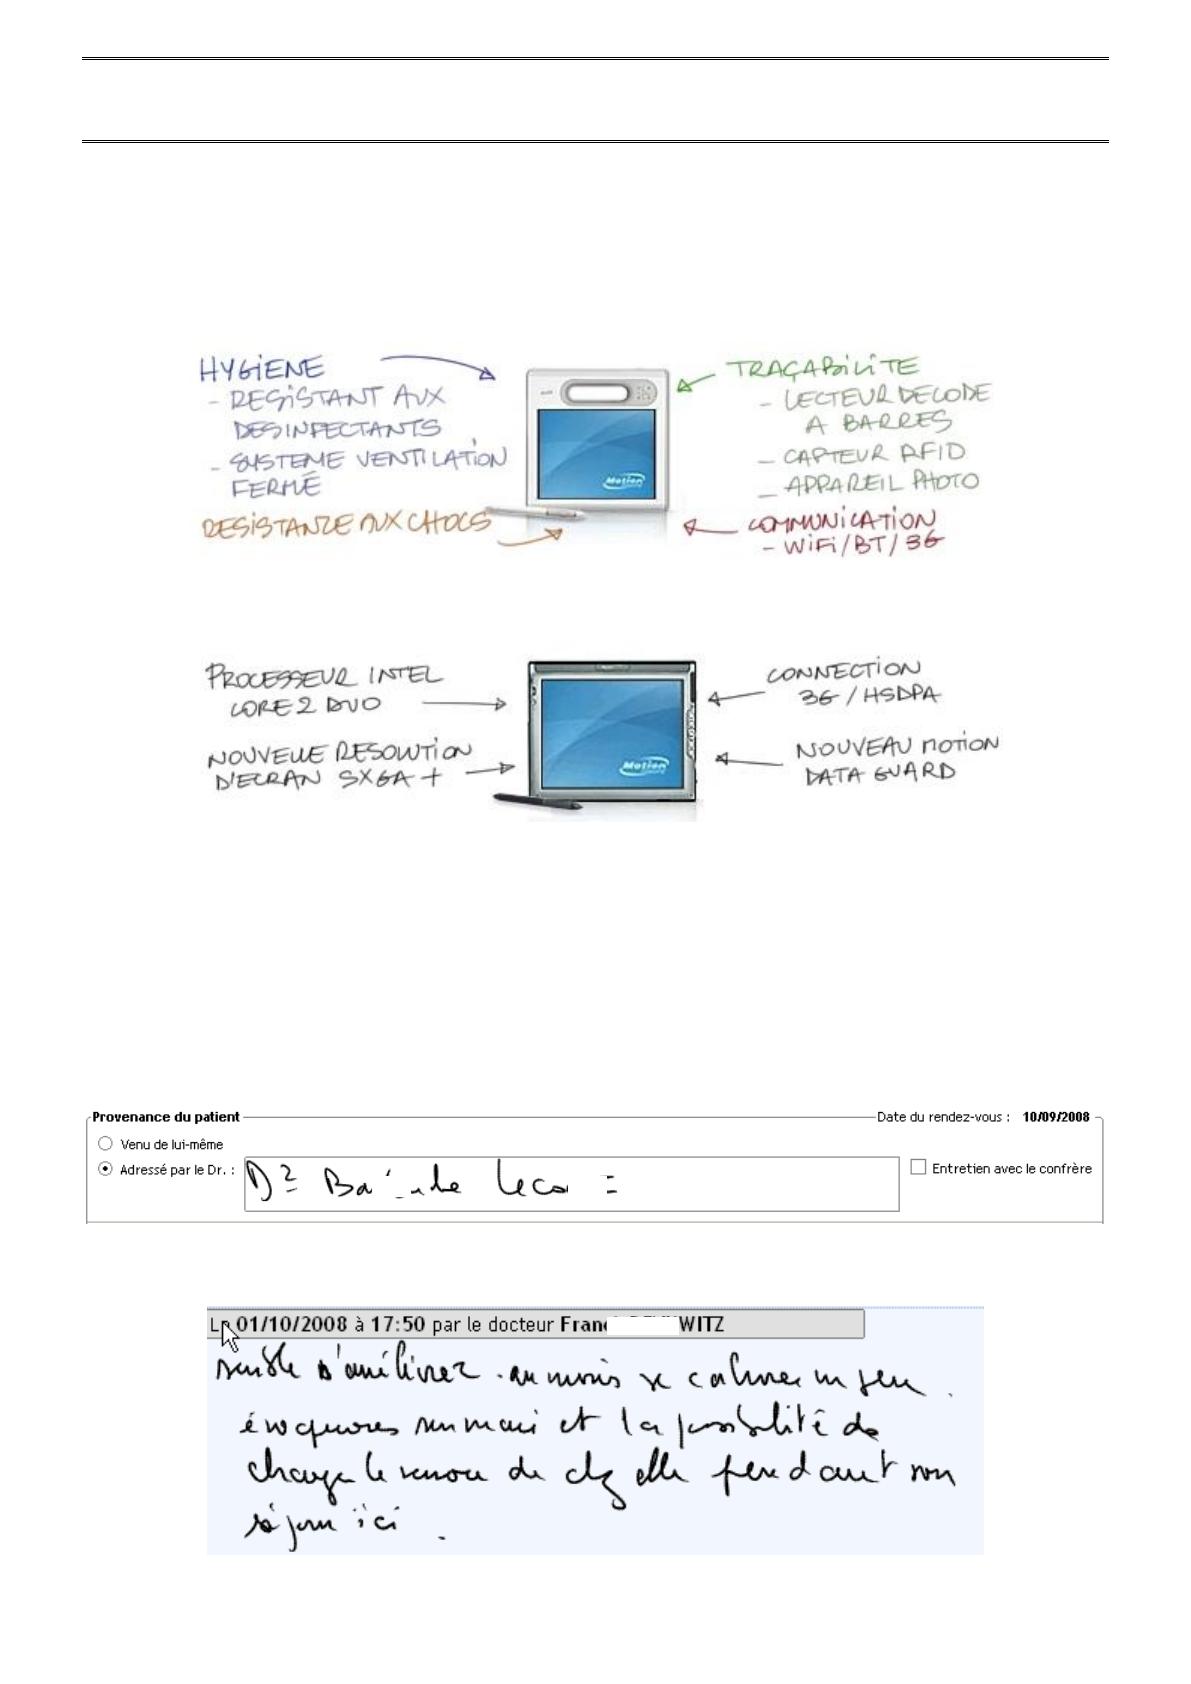 HYGIENE
- RESISTANT AUX
DESINFECTANTS
- SYSTEME VENTILATION
FERMÉ
RESISTANZE AUX CHOCS
TRAÇABILITE
- LECTEUR DE CODE
A BARRES
- CAPTEUR RFID
- APPAREIL PHOTO
COMMUNICATION
- WIFI/BT/3G
Motion
PROCESSEUR INTEL
CORE 2 DUO
NOUVELLE RESOLUTION
D'ECRAN SXGA+
CONNECTION
3G/HSDPA
NOUVEAU MOTION
DATA GUARD
Motion
Provenance du patient
Date du rendez-vous : 10/09/2008
Venu de lui-même
Adressé par le Dr. :
Entretien avec le confrère
Le 01/10/2008 à 17:50 par le docteur Franc WITZ
semble s'améliorer. au moins se calmer un peu.
évoquons son mari et la possibilité de
changer le de chez elle pendant son
séjour ici.